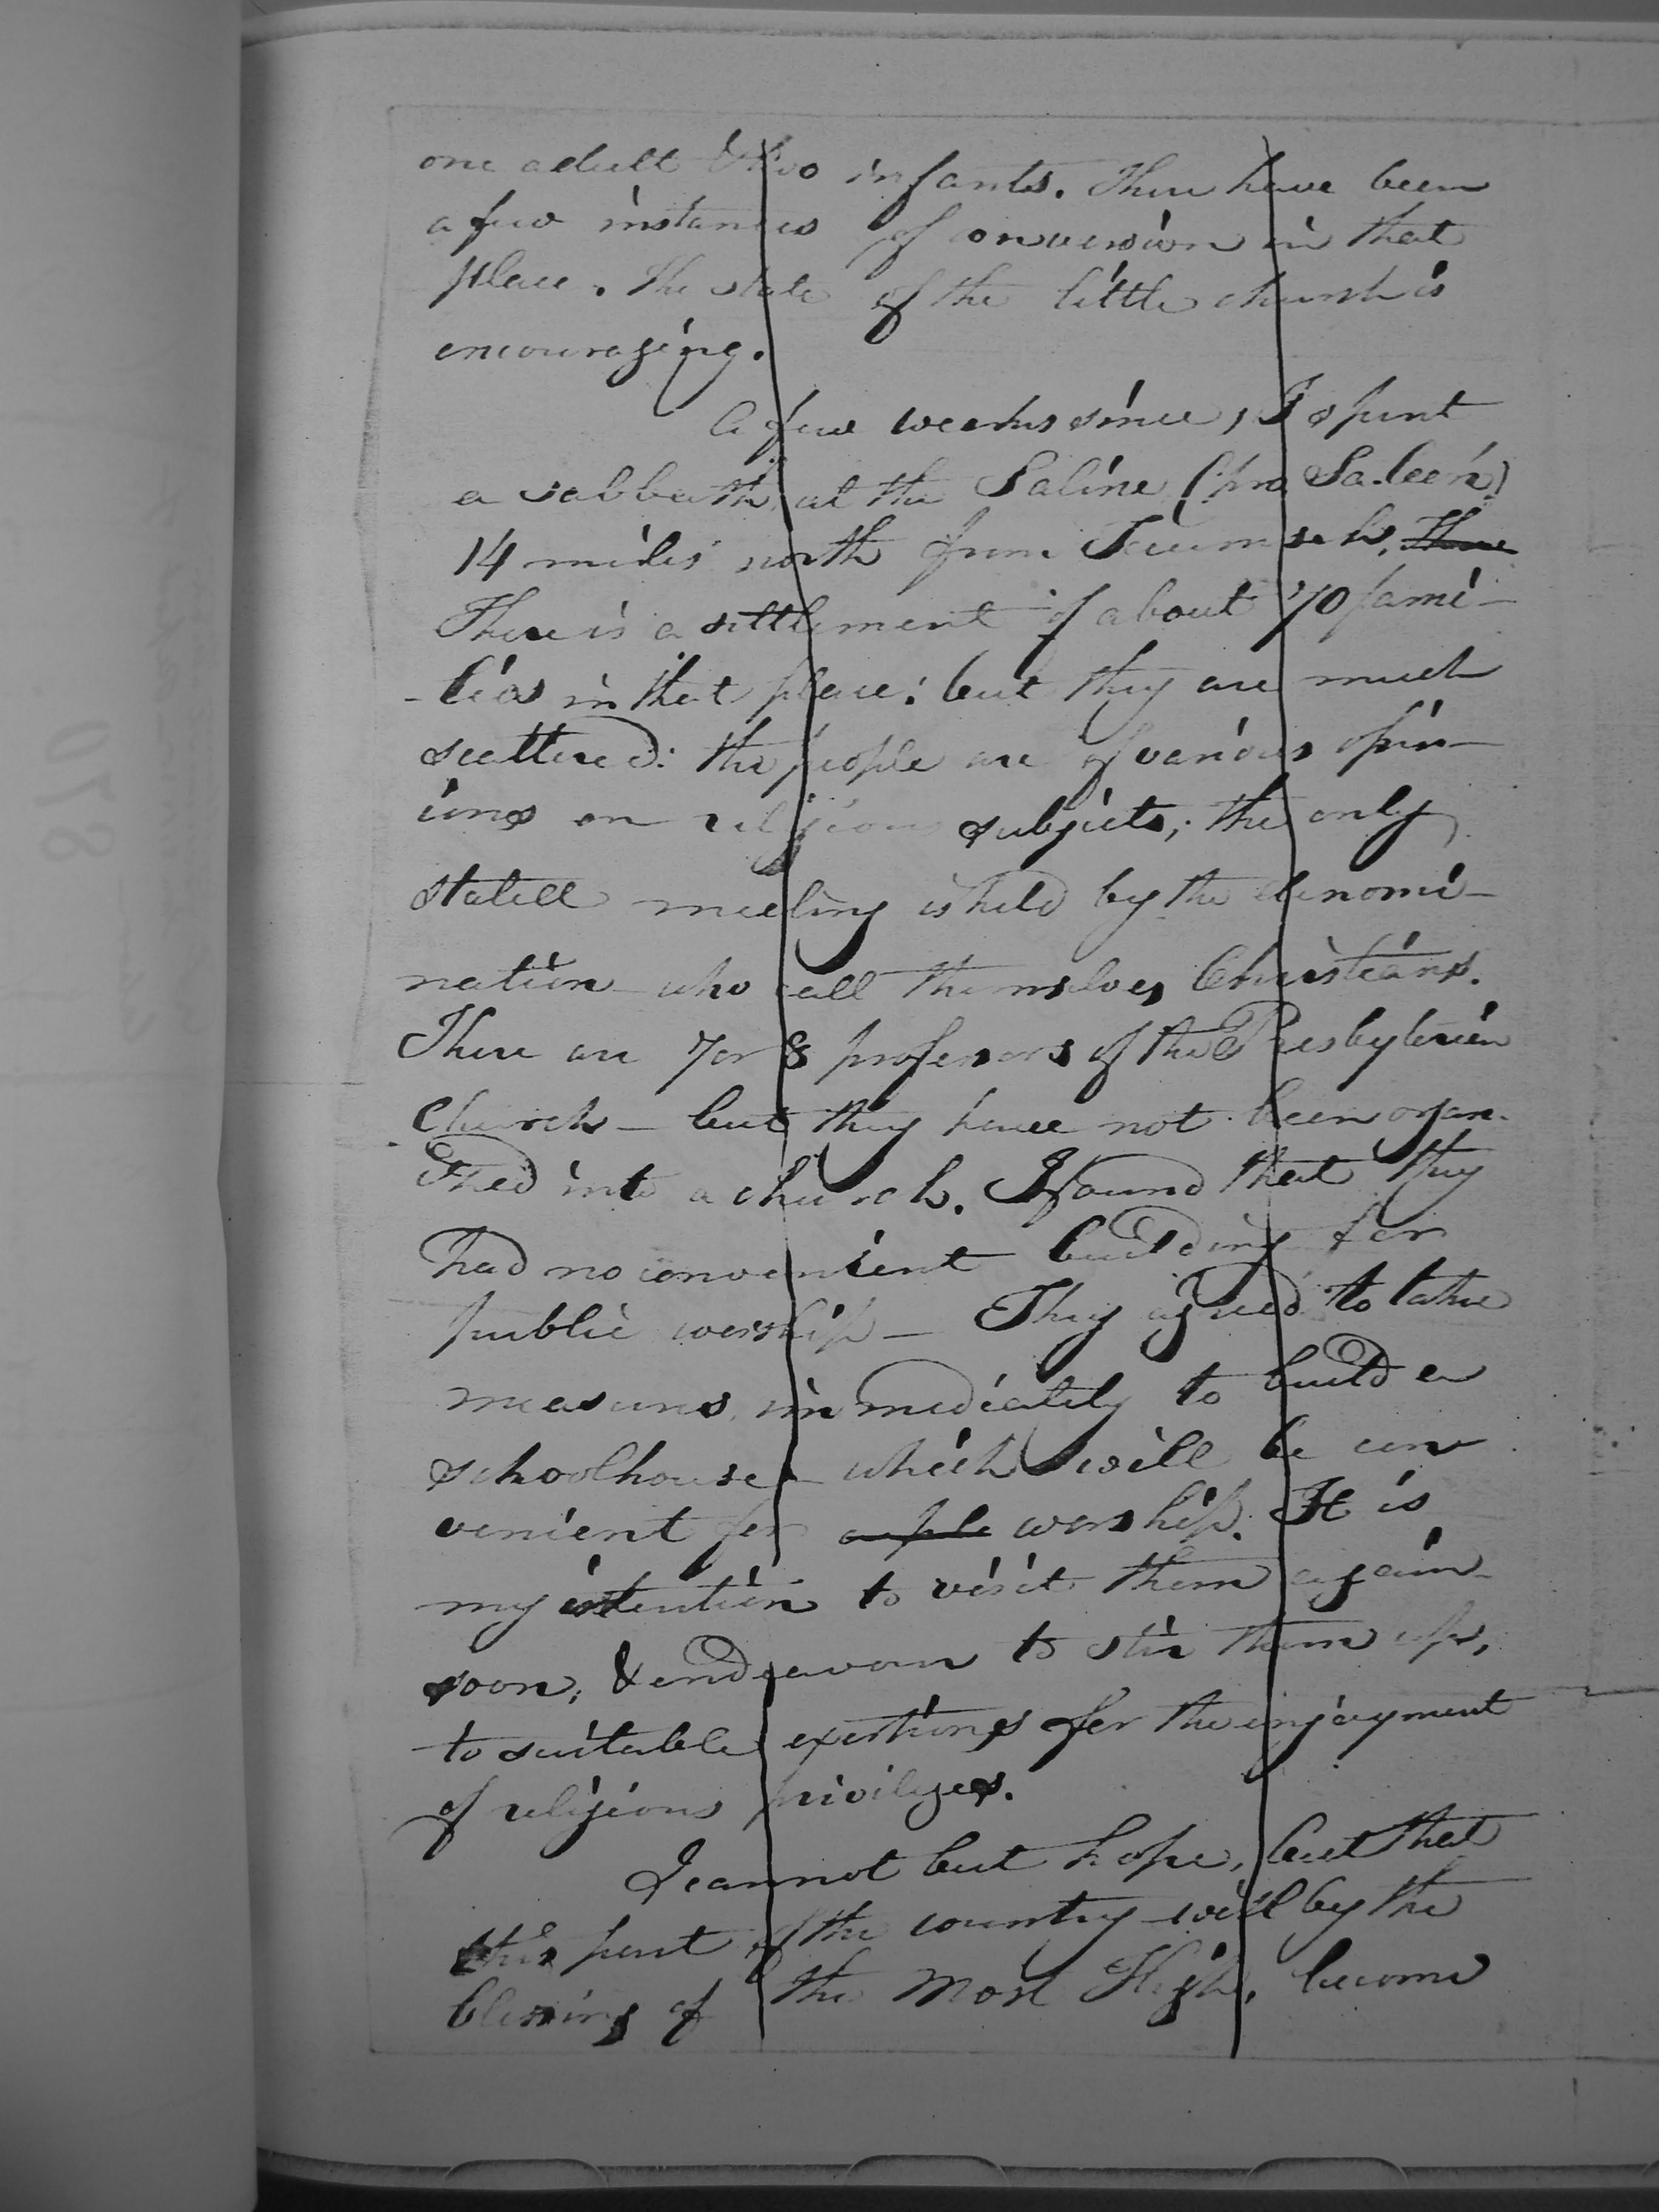 one adult & two infants. There have been
a few instances of conversion in that
place. The state of the little church is
encouraging.
A few weeks since, I spent
a sabbath, at the Saline (pro Sa-leen)
14 miles north from Tecumseh. There
There is a settlement of about 70 fami-
-lies in that place: but they are much
scattered: the people are of various opin-
ions on religious subjects; the only
stated meeting is held by the denomi-
nation who call themselves Christians.
There are 7 or 8 professors of the Presbyterian
Church – but they have not been organ-
ized into a church. I found that they
had no convenient building for
public worship – They agreed to take
measures immediately to build a
schoolhouse – which will be con
venient for worship. It is
my intention to visit them again
soon, & endeavour to stir them up,
to suitable exertions for the enjoyment
of religious privileges.
I cannot but hope, but that
this part of the country will by the
blessing of the Most High, become